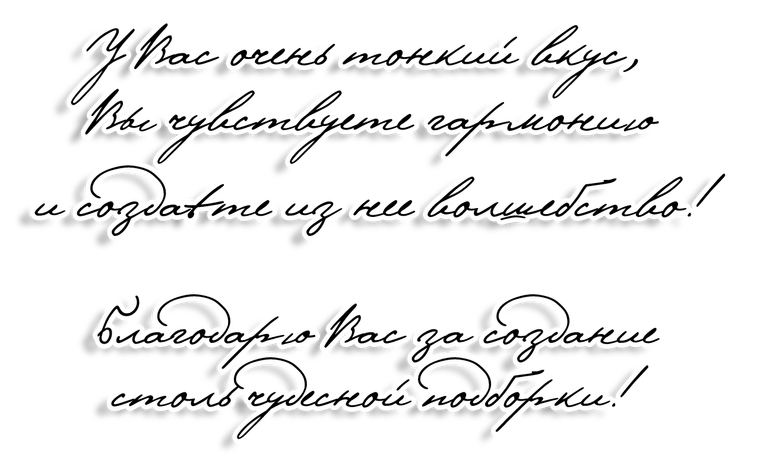 У Вас очень тонкий вкус,
Вы чувствуете гармонию
и создаёте из нее волшебство!
Благодарю Вас за создание
столь чудесной подборки!